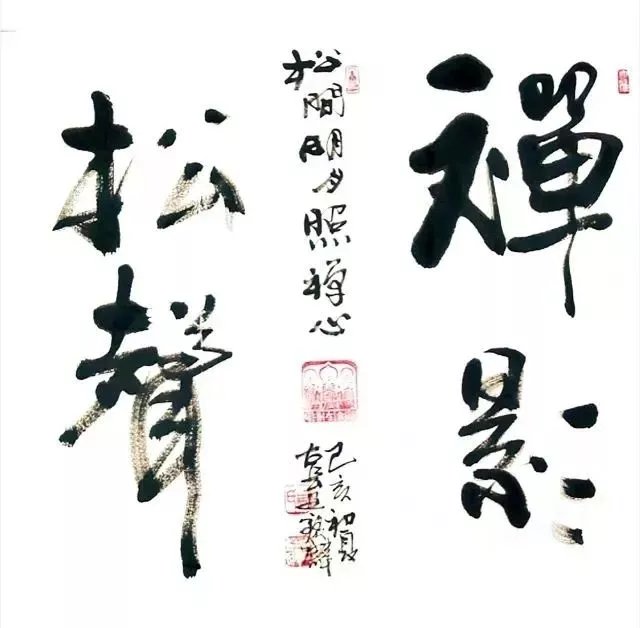 禪影
松間明月照禅心
己亥初夏
松聲